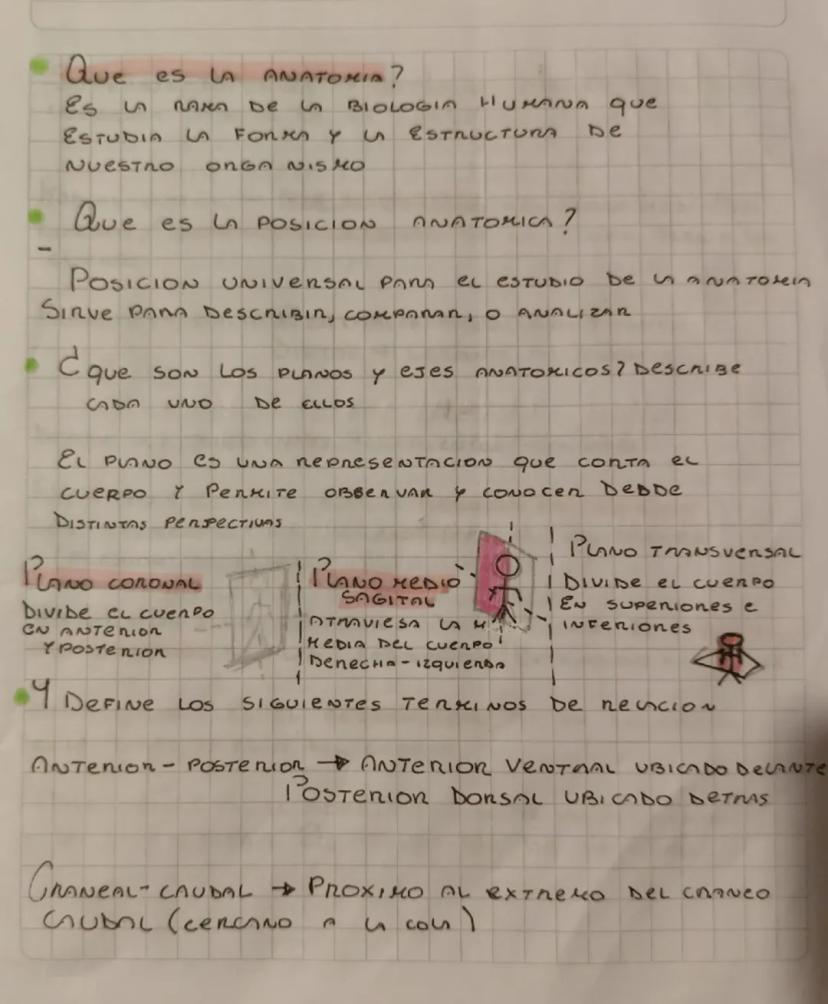 Que es la anatomia?
Es la rama de la biologia humana que
estudia la forma y la estructura de
nuestro organismo
Que es la posicion anatomica?
-
Posicion universal para el estudio de la anatomia
Sirve para describir, comparar, o analizar
¿que son los planos y ejes anatomicos? Describe
cada uno de ellos
El plano es una representacion que corta el
cuerpo y permite observar y conocer desde
distintas perspectivas
Plano coronal
Divide el cuerpo
en anterior
y posterior
Plano medio
sagital
atraviesa la
media del cuerpo
derecha-izquierda
Plano transversal
Divide el cuerpo
en superiores e
inferiores
4 Define los siguientes terminos de relacion
Anterior - posterior → anterior ventral ubicado delante
Posterior dorsal ubicado detras
Craneal-caudal → Proximo al extremo del craneo
caudal (cercano a la cola)